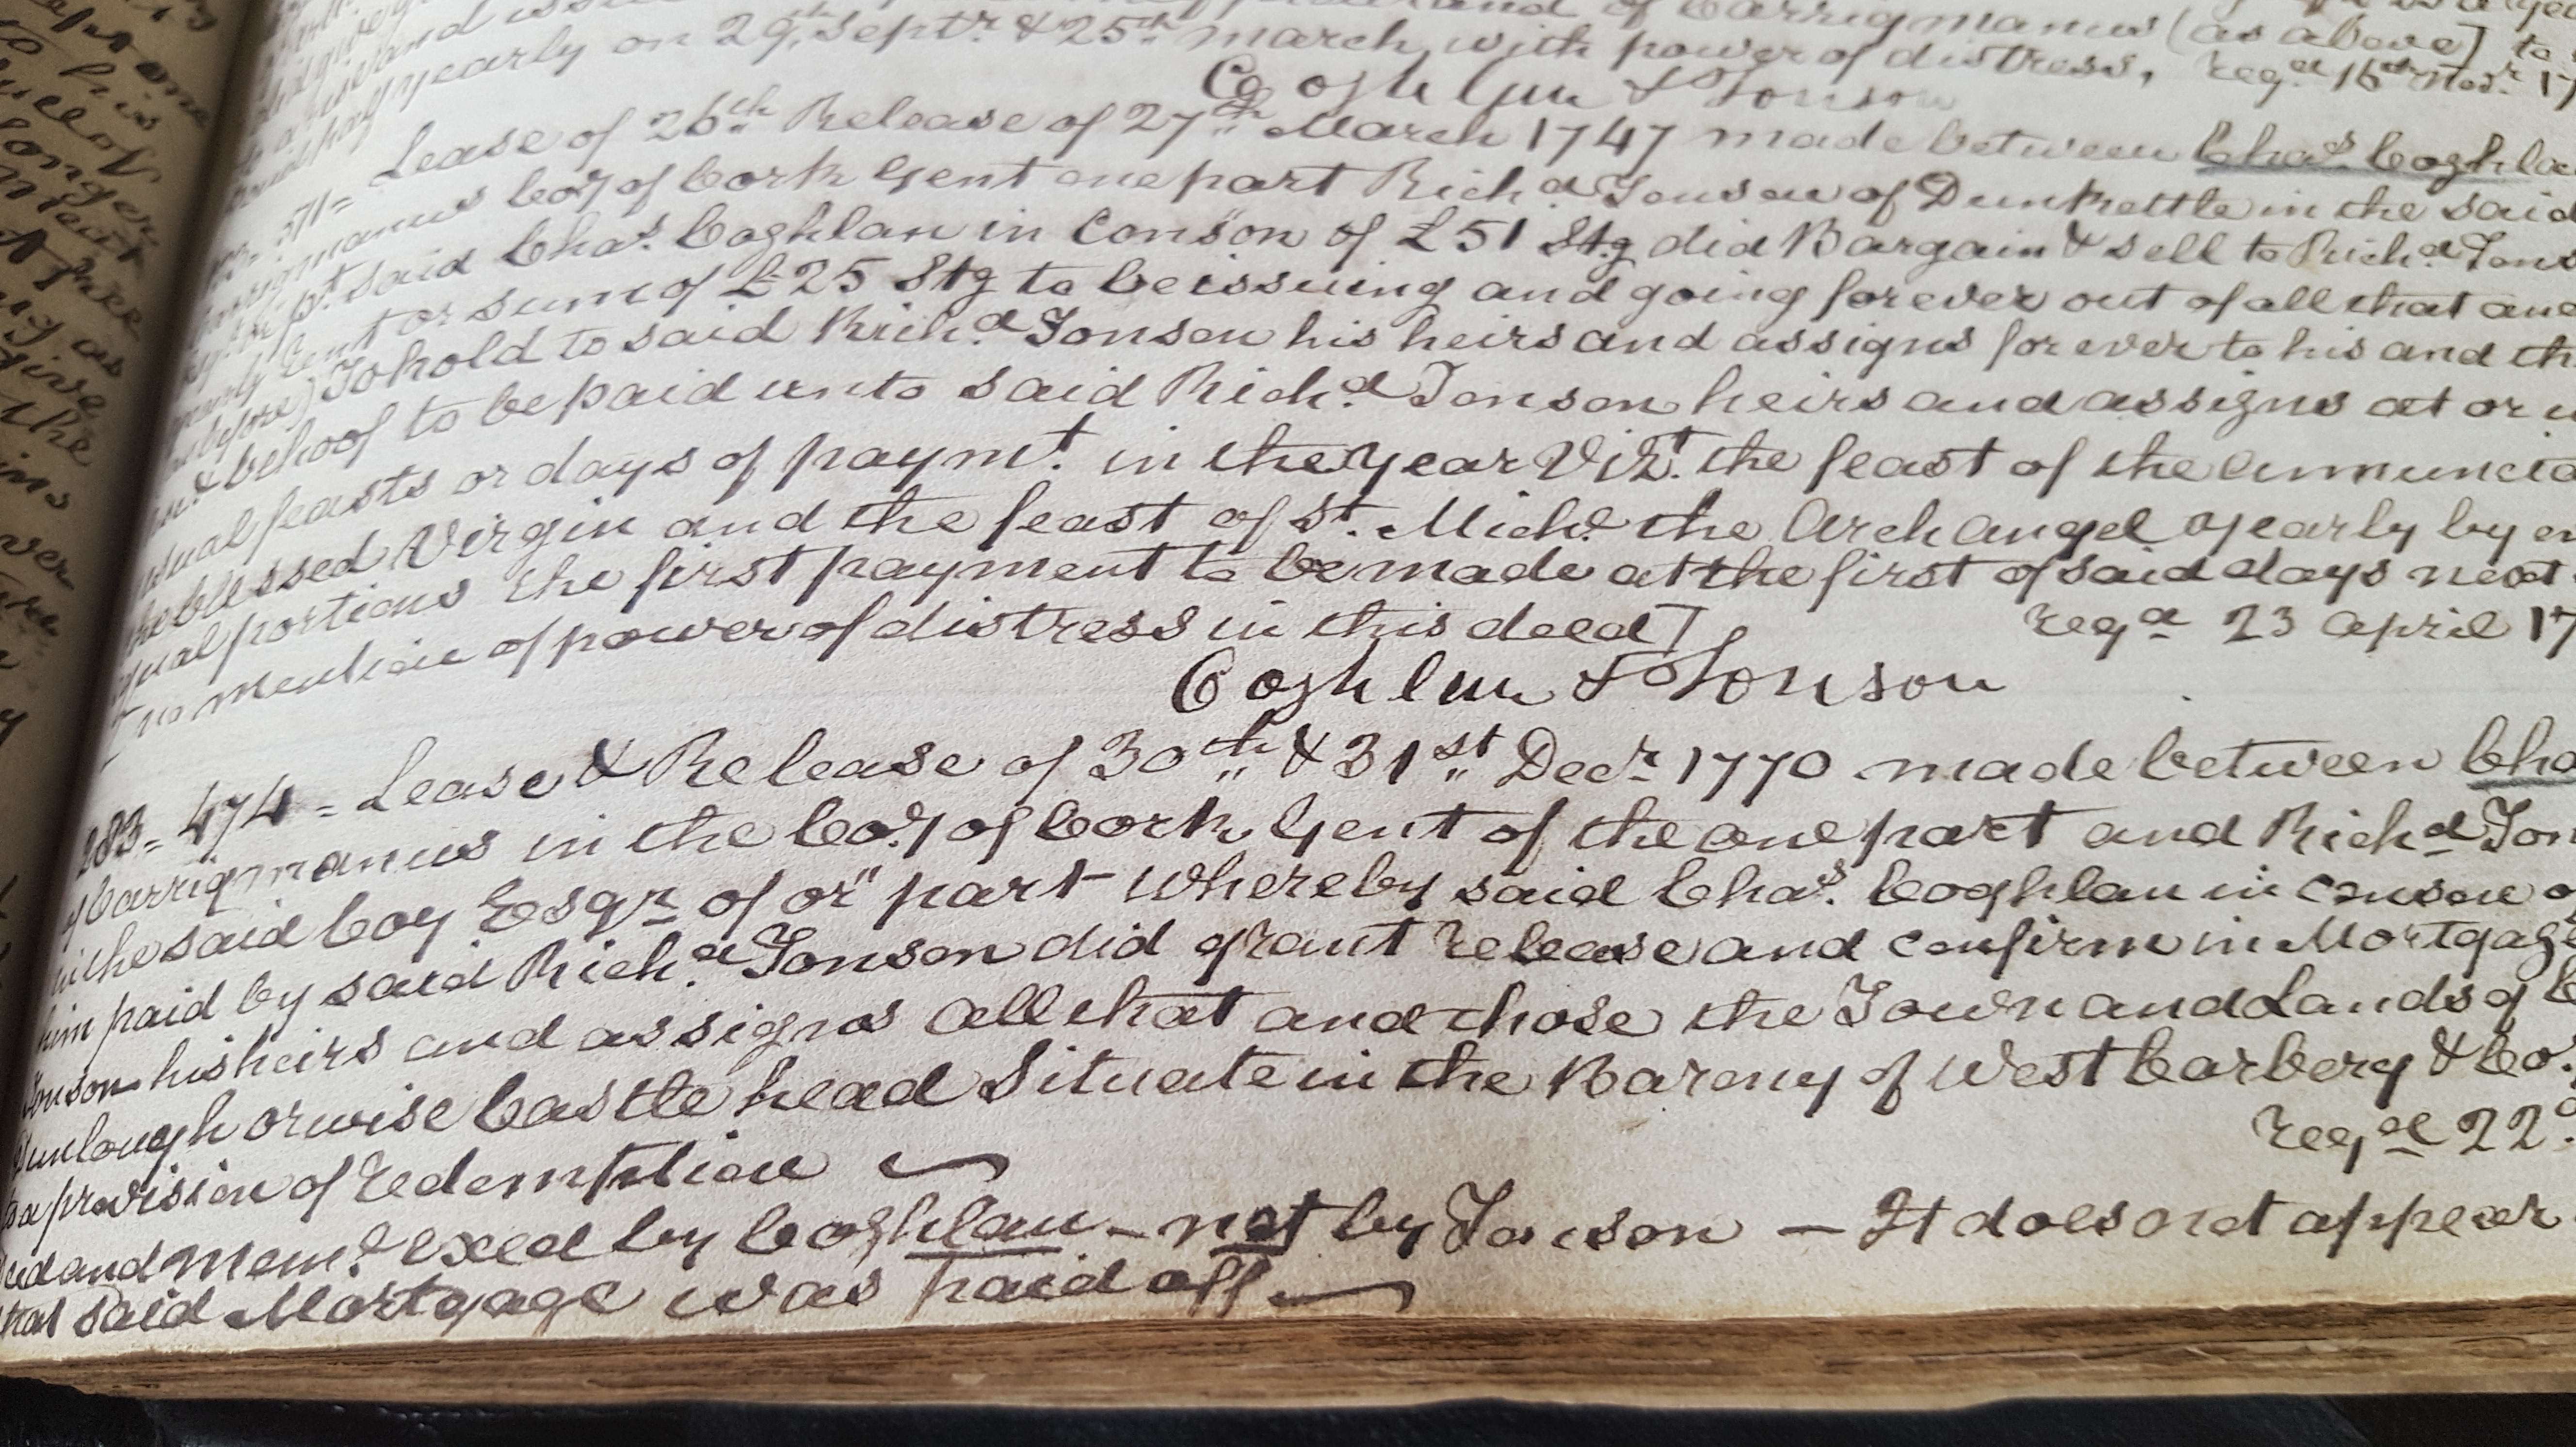 yearly on 29th Septr & 25th March, with power of distress, regd 16th Novr 17
Coghlan to Tonson
571= Lease of 26th Release of 27th March 1747 made between Chas Coghla
Coy of Cork Gent one part Richd Tonson of Dunkettle in the said
pt. said Chas. Coghlan in Conson of £51 Stg did Bargain & sell to Richd Tons
yearly rent or sum of £25 Stg to be issuing and going forever out of all that and
as before) To hold to said Richd Tonson his heirs and assigns for ever to his and th
& behoof to be paid unto said Richd Tonson heirs and assigns at or
usual feasts or days of paymt. in the year Vizt. the feast of the annuncia
the blessed Virgin and the feast of St. Michl the Archangel yearly by e
equal portions the first payment to be made at the first of said days next
no mention of power of distress in this deed] regd 23 april 17
Coghlan to Tonson
283= 474= Lease & Release of 30th & 31st Decr 1770 made between Cha
of Carrigmanus in the Coy of Cork Gent of the one part and Richd Ton
in the said Coy Esqr of or part whereby said Chas. Coghlan in conson o
him paid by said Richd Tonson did grant release and confirm in Mortgage
Tonson his heirs and assigns all that and those the Town and Lands of
Dunlough orwise Castle head Situate in the Barony of West Carbery & Co.
to a provision of redemption regd 22d
Deed and Meml exed by Coghlan - not by Tonson — It does not appear
that said Mortgage was paid off